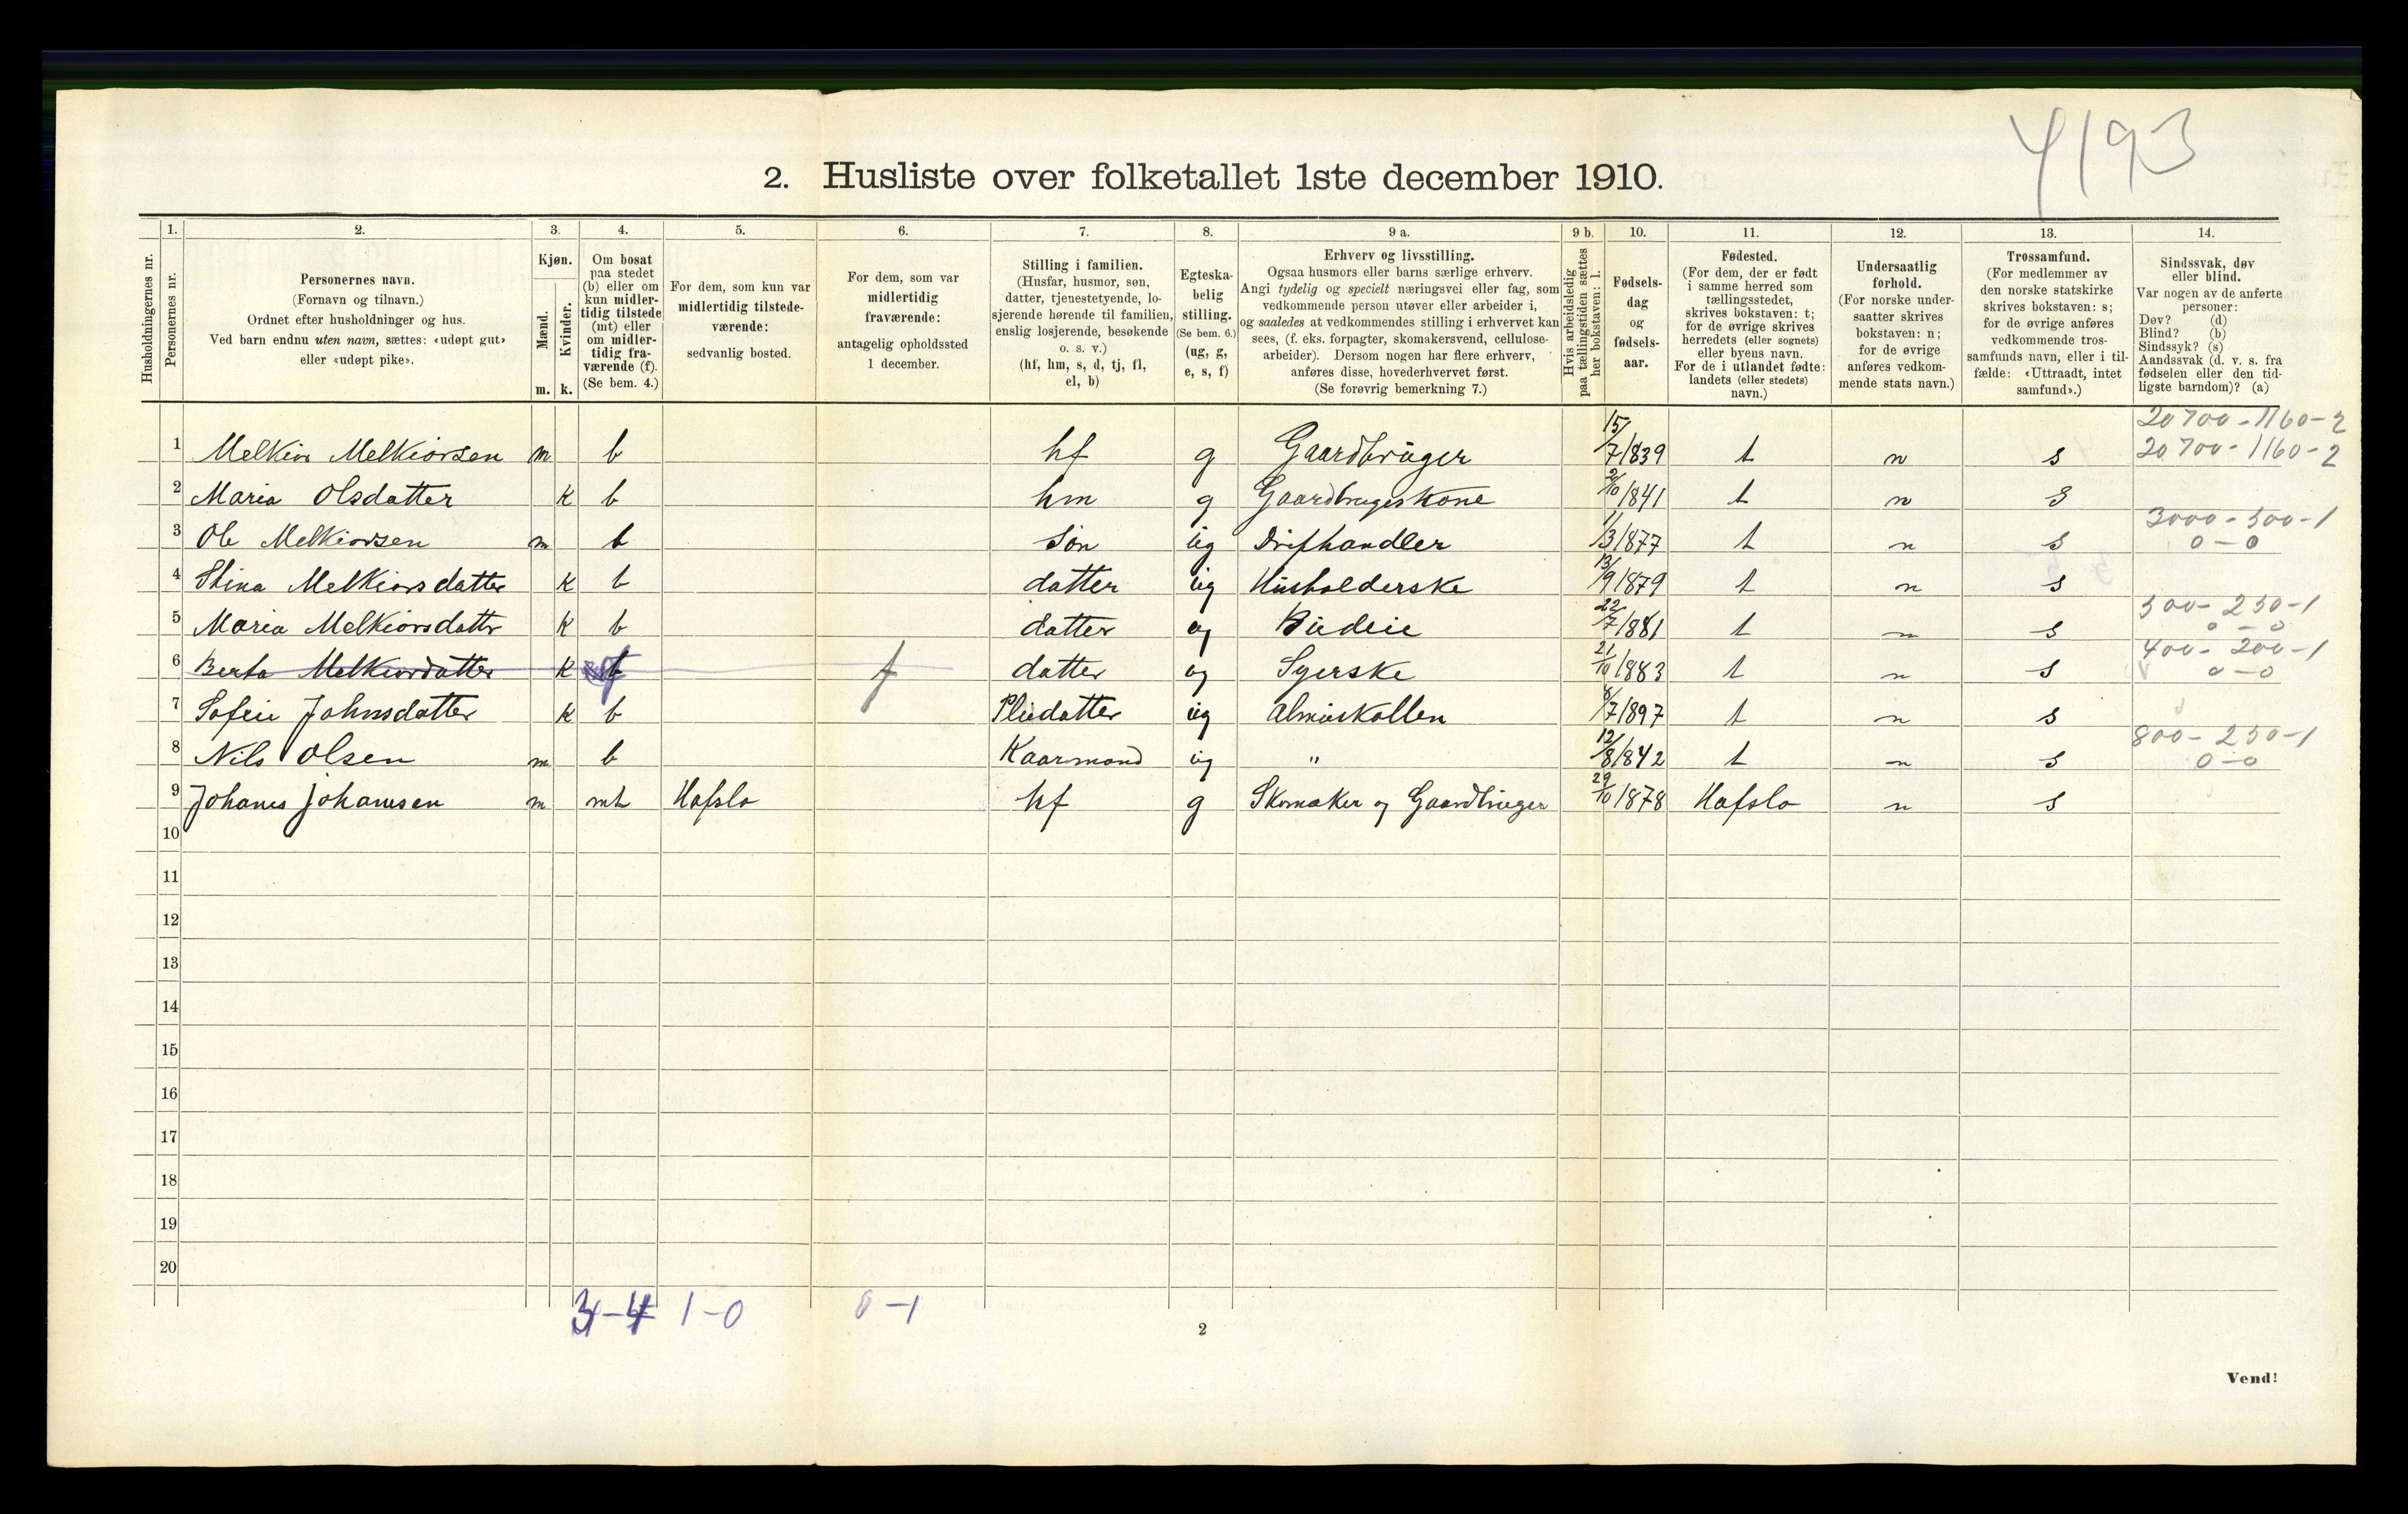 4193
2. Husliste over folketallet 1ste december 1910.
1. 2. 3. 4. 5. 6. 7. 8. 9 a. 9 b. 10. 11. 12. 13. 14.
Husholdningernes nr.
Personernes nr.
Personernes navn.
(Fornavn og tilnavn.)
Ordnet efter husholdninger og hus.
Ved barn endnu uten navn, sættes: «udøpt gut»
eller «udøpt pike».
Kjøn.
Mænd.
Kvinder.
m. k.
Om bosat
paa stedet
(b) eller om
kun midler-
tidig tilstede
(mt) eller
om midler-
tidig fra-
værende (f).
(Se bem. 4.)
For dem, som kun var
midlertidig tilstede-
værende:
sedvanlig bosted.
For dem, som var
midlertidig
fraværende:
antagelig opholdssted
1 december.
Stilling i familien.
(Husfar, husmor, søn,
datter, tjenestetyende, lo-
sjerende hørende til familien,
enslig losjerende, besøkende
o. s. v.)
(hf, hm, s, d, tj, fl,
el, b)
Egteska-
belig
stilling.
(Se bem. 6.)
(ug, g,
e, s, f)
Erhverv og livsstilling.
Ogsaa husmors eller barns særlige erhverv.
Angi tydelig og specielt næringsvei eller fag, som
vedkommende person utøver eller arbeider i,
og saaledes at vedkommendes stilling i erhvervet kan
sees, (f. eks. forpagter, skomakersvend, cellulose-
arbeider). Dersom nogen har flere erhverv,
anføres disse, hovederhvervet først.
(Se forøvrig bemerkning 7.)
Hvis arbeidsledig
paa tællingstiden sættes
her bokstaven: l.
Fødsels-
dag
og
fødsels-
aar.
Fødested.
(For dem, der er født
i samme herred som
tællingsstedet,
skrives bokstaven: t;
for de øvrige skrives
herredets (eller sognets)
eller byens navn.
For de i utlandet fødte:
landets (eller stedets)
navn.)
Undersaatlig
forhold.
(For norske under-
saatter skrives
bokstaven: n;
for de øvrige
anføres vedkom-
mende stats navn.)
Trossamfund.
(For medlemmer av
den norske statskirke
skrives bokstaven: s;
for de øvrige anføres
vedkommende tros-
samfunds navn, eller i til-
fælde: «Uttraadt, intet
samfund».)
Sindssvak, døv
eller blind.
Var nogen av de anførte
personer:
Døv? (d)
Blind? (b)
Sindssyk? (s)
Aandssvak (d. v. s. fra
fødselen eller den tid-
ligste barndom)? (a)
20700-1160-2
1 Melkior Melkiorsen m b hf g Gaardbruger 15/7/839 t n s 20700-1160-2
2 Maria Olsdatter k b hm g Gaardbrugerskone 2/10/841 t n s
3000-500-1
3 Ole Melkiorsen m b Søn ug Drifhandler 1/3/877 t n s 0-0
4 Stina Melkiorsdatter k b datter ug Husholderske 13/9/879 t n s
500-250-1
5 Maria Melkiorsdattr k b datter ug Budeie 22/7/881 t n s 0-0
400-200-1
6 Berta Melkiordatter k f f datter ug Syerske 21/10/883 t n s 0-0
7 Sofeie Johnsdatter k b Pleidatter ug Almuskallen 8/7/897 t n s
800-250-1
8 Nils Olsen m b Kaarmand ug " 12/8/842 t n s 0-0
9 Johanes Johanesen m mt Hafslo hf g Skomaker og Gaardbruger 29/10/878 Hafslo n s
10
11
12
13
14
15
16
17
18
19
20
3-4 1-0 0-1
2
Vend!